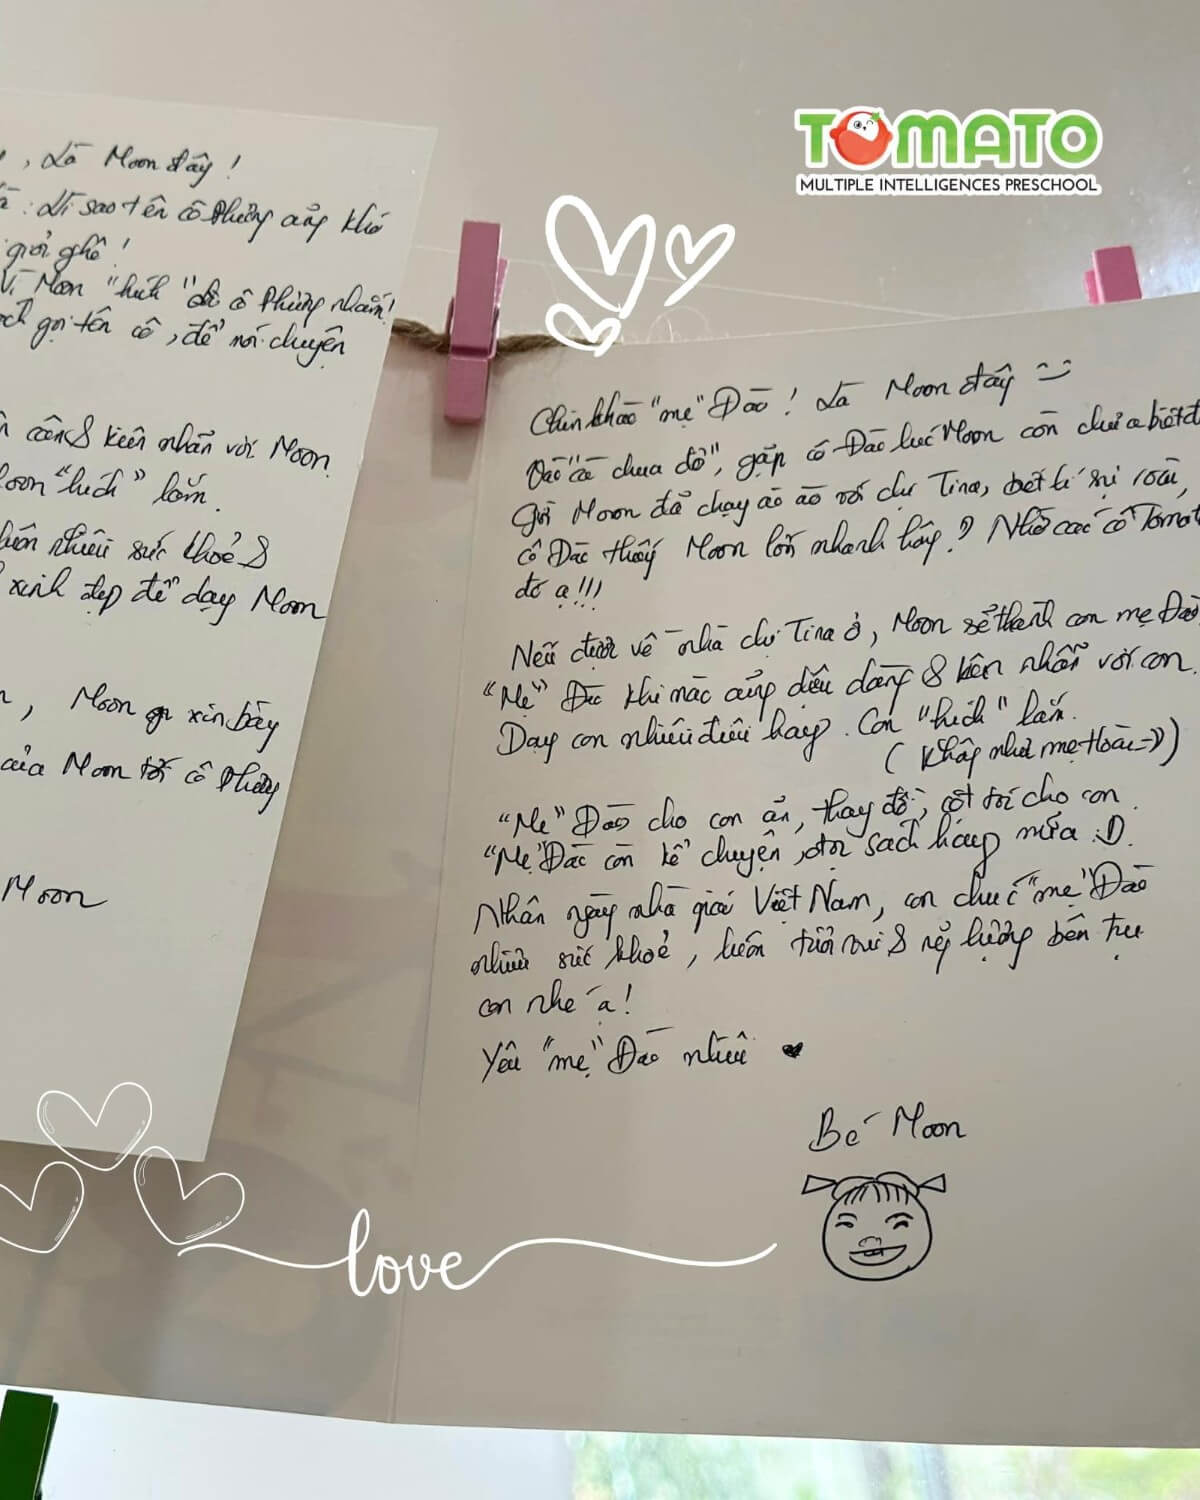 TOMATO
MULTIPLE INTELLIGENCES PRESCHOOL
, Là Moon đây!
: Vì sao tên cô Phương cũng khó
giỏi ghê!
Vì Moon "hích" cô Phương nhắm!
gọi tên cô, để nói chuyện
cần & kiên nhẫn với Moon.
"hích" lắm.
nhiều sức khoẻ &
xinh đẹp để dạy Moon
, Moon xin bày
của Moon tới cô Phương
Moon
Chin khào "mẹ" Đào! Là Moon đây
Đào "cà chua đỏ", gặp cô Đào lúc Moon còn chưa biết đ
giờ Moon đã chạy ào ào với chị Tina, bét tí sị rồi,
cô Đào thấy Moon lớn nhanh hông? Nhờ các cô Tomato
đó ạ!!!
Nếu được về nhà chị Tina ở, Moon sẽ thành con mẹ Đào,
"Mẹ" Đào khi nào cũng dịu dàng & kiên nhẫn với con.
Dạy con nhiều điều hay. Con "hích" lắm.
(Khấp như mẹ Hoài =))
"Mẹ" Đào cho con ăn, thay đồ, cột tóc cho con.
"Mẹ" Đào còn kể chuyện, đọc sách hay nữa :D.
Nhân ngày nhà giáo Việt Nam, con chúc "mẹ" Đào
nhiều sức khoẻ, luôn tươi vui & năng lượng bên tụi
con nhé ạ!
Yêu "mẹ" Đào nhiều ♥
Bé Moon
love